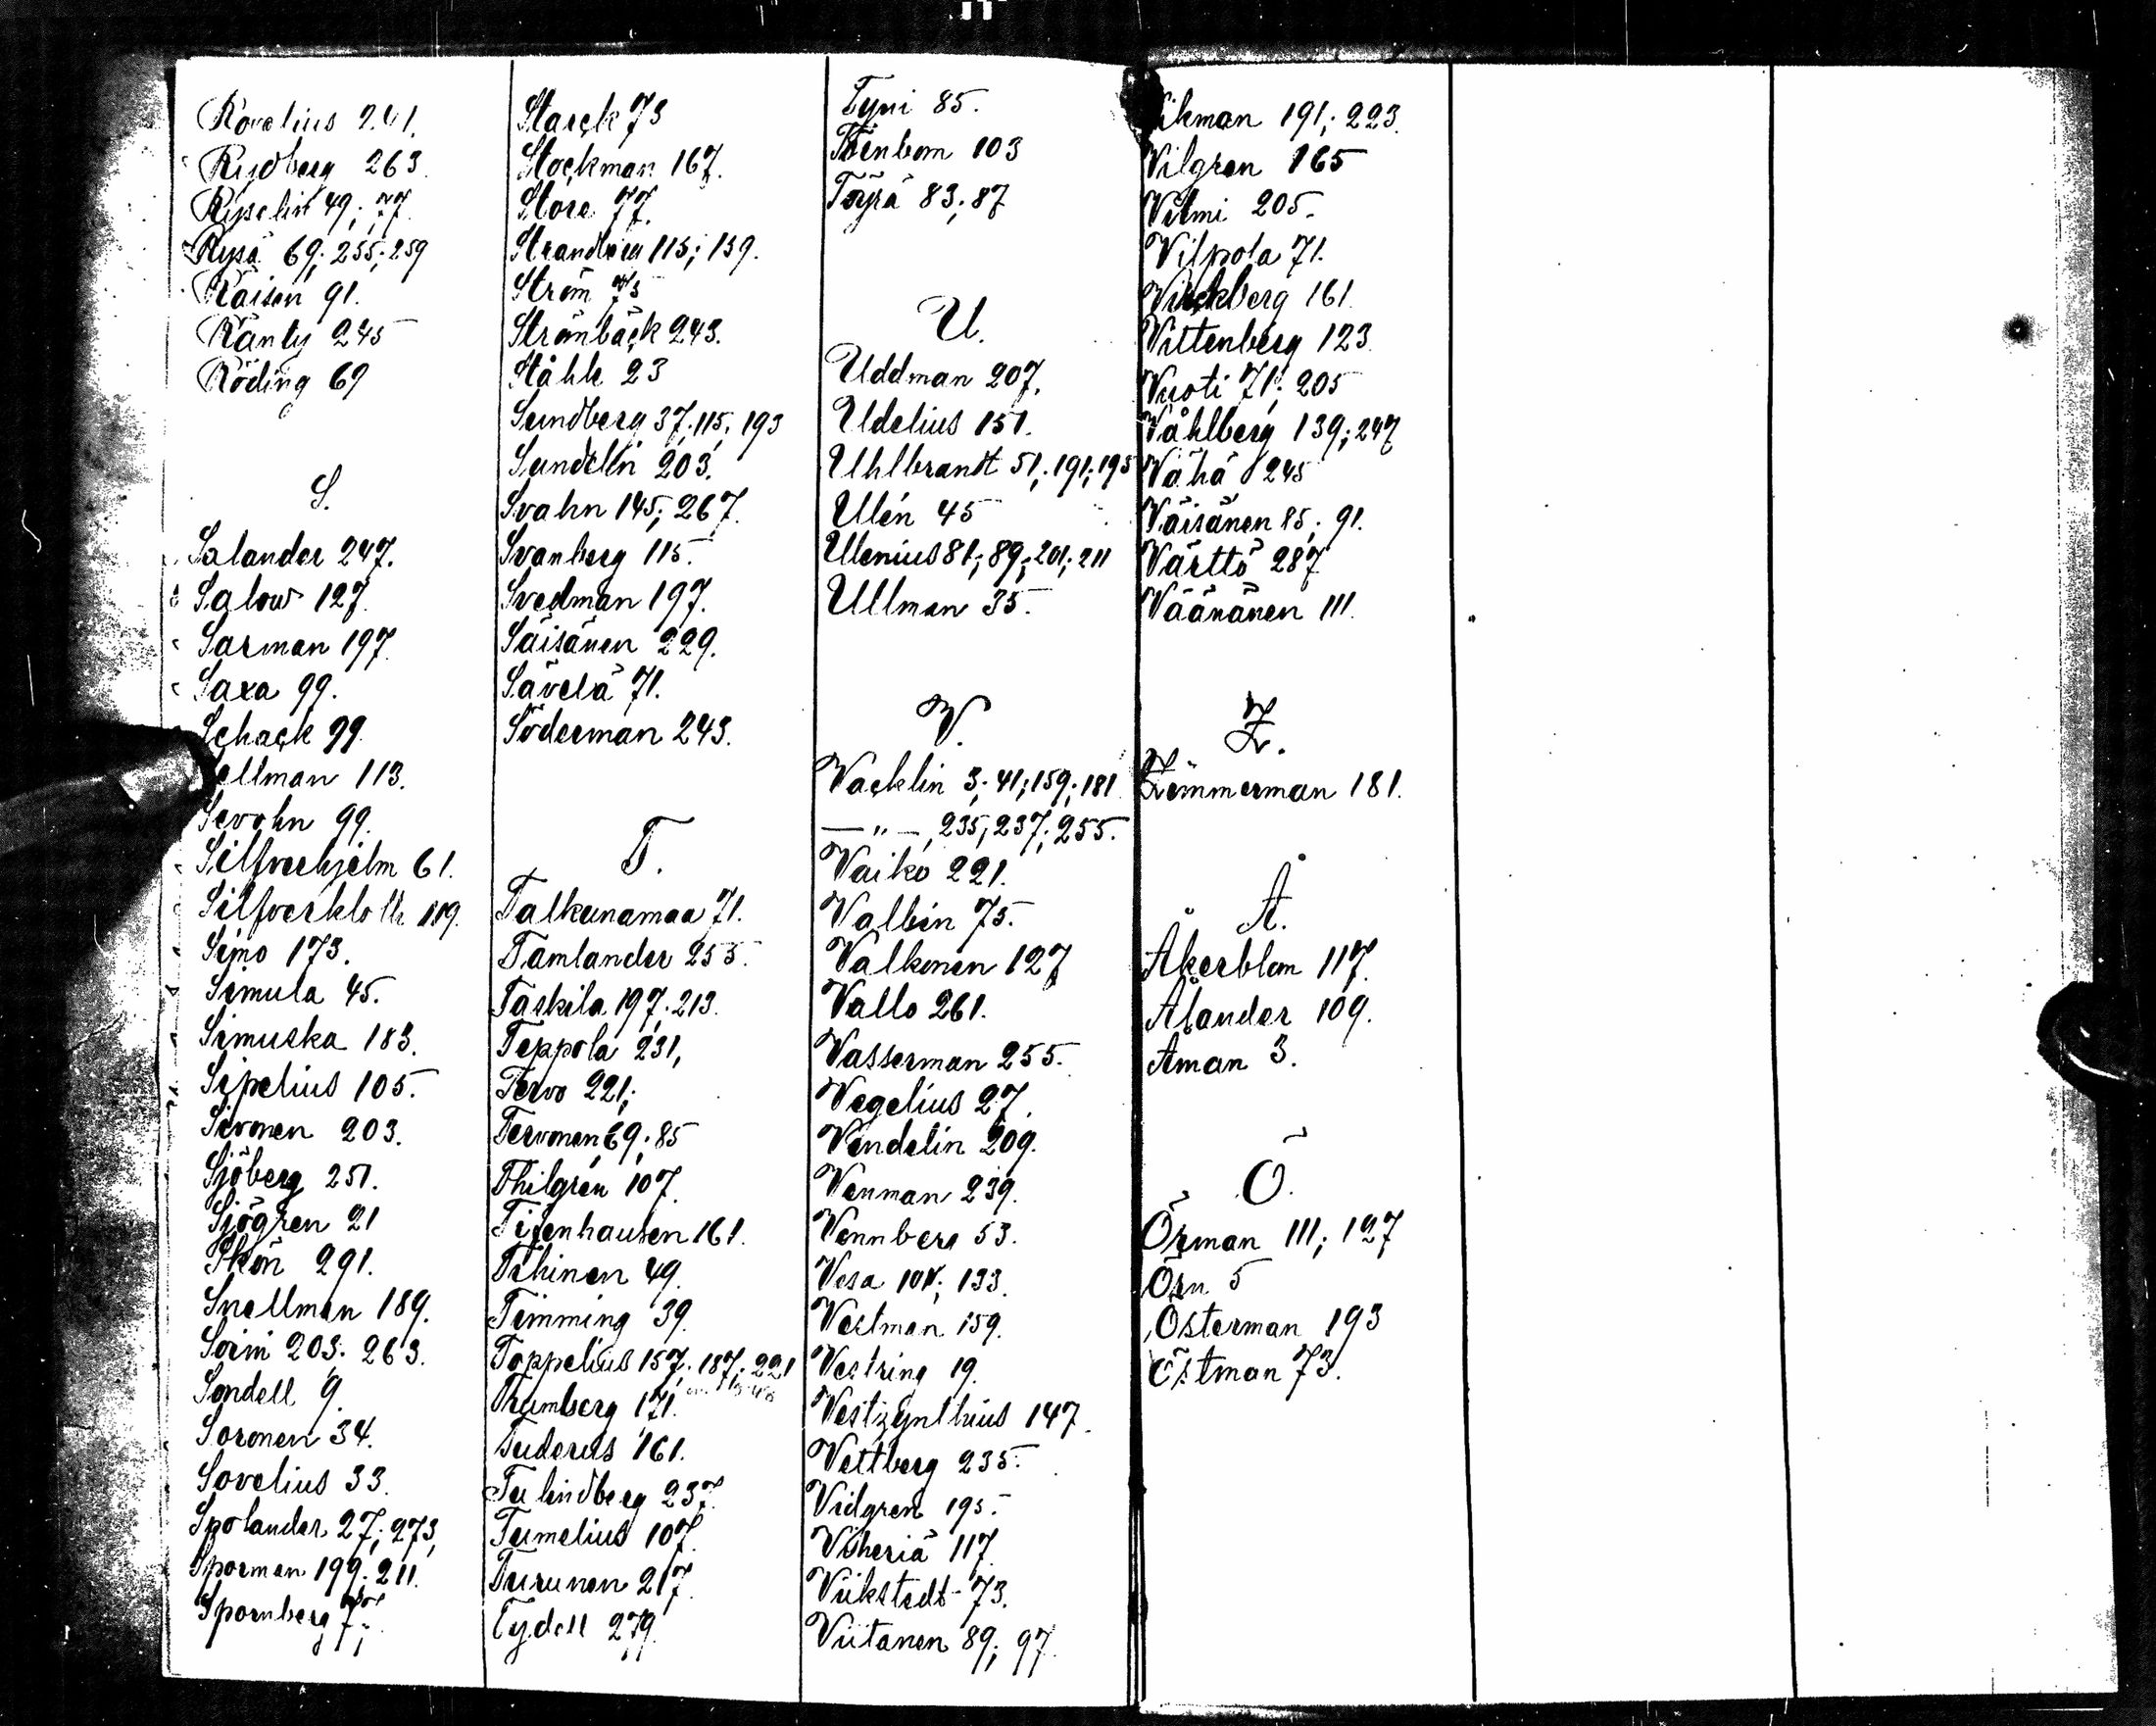 Rovelius 241.
Rydberg 263.
Ryselin 49; 77.
Rysä 69; 255; 259
Räisen 91.
Ränty 245
Röding 69
S.
Salander 247.
Salow 127.
Sarman 197.
Saxa 99.
Schack 99.
Sellman 113.
Sevohn 99.
Silfverhjelm 61.
Silfverkloth 119.
Simo 173.
Simula 45.
Simuska 183.
Sipelius 105.
Sivonen 203.
Sjöberg 251.
Sjögren 21
Skön 291.
Snellman 189.
Soini 203; 263.
Sondell 9.
Soronen 34.
Sovelius 33.
Spolander 27; 273,
Sporman 199; 211.
Spornberg 77;
Starck 73
Stockman 167.
Store 77.
Strandberg 115; 159.
Ström 75
Strömbäck 243.
Ståhle 23
Sundberg 37; 115; 193
Sundelin 203.
Svahn 145; 267.
Svanberg 115.
Svedman 197.
Säisänen 229.
Sävelä 71.
Söderman 243.
T.
Talkunamaa 71.
Tamlander 255.
Taskila 197; 213.
Teppola 231,
Tervo 221;
Tervonen 69; 85
Thilgrén 107.
Tisenhausen 161.
Tihinen 49.
Timming 39.
Toppelius 157; 187; 221
Thumberg 171.
Tuderus 161.
Tulindberg 237.
Tumelius 107.
Turunen 217.
Tydell 279.
Tyni 85.
Törnbom 103
Töyrä 83; 87
U.
Uddman 207.
Udelius 151.
Uhlbrandt 51; 191; 195
Ulén 45
Ulenius 81; 89; 201; 211
Ullman 35.
V.
Vacklin 3; 41; 159; 181
— „ — 235; 237; 255.
Vaiko 221.
Valbin 75.
Valkonen 127
Vallo 261.
Vasserman 255.
Vegelius 27.
Vendelin 209.
Venman 239.
Vennberg 53.
Vesa 101; 133.
Vestman 159.
Vestring 19.
Vestzynthius 147.
Vettberg 235.
Vidgren 195.
Viheriä 117.
Viikstedt 73.
Viitanen 89; 97.
Vikman 191; 223.
Vilgren 165
Vilmi 205.
Vilpola 71.
Virckberg 161
Vittenberg 123
Vuoti 71; 205
Våhlberg 139; 247
Vähä 245
Väisänen 85; 91.
Värttö 287
Väänänen 111.
Z.
Zimmerman 181.
Å.
Åkerblom 117.
Ålander 109.
Åman 3.
Ö.
Örman 111; 127
Örn 5
Österman 193
Östman 73.